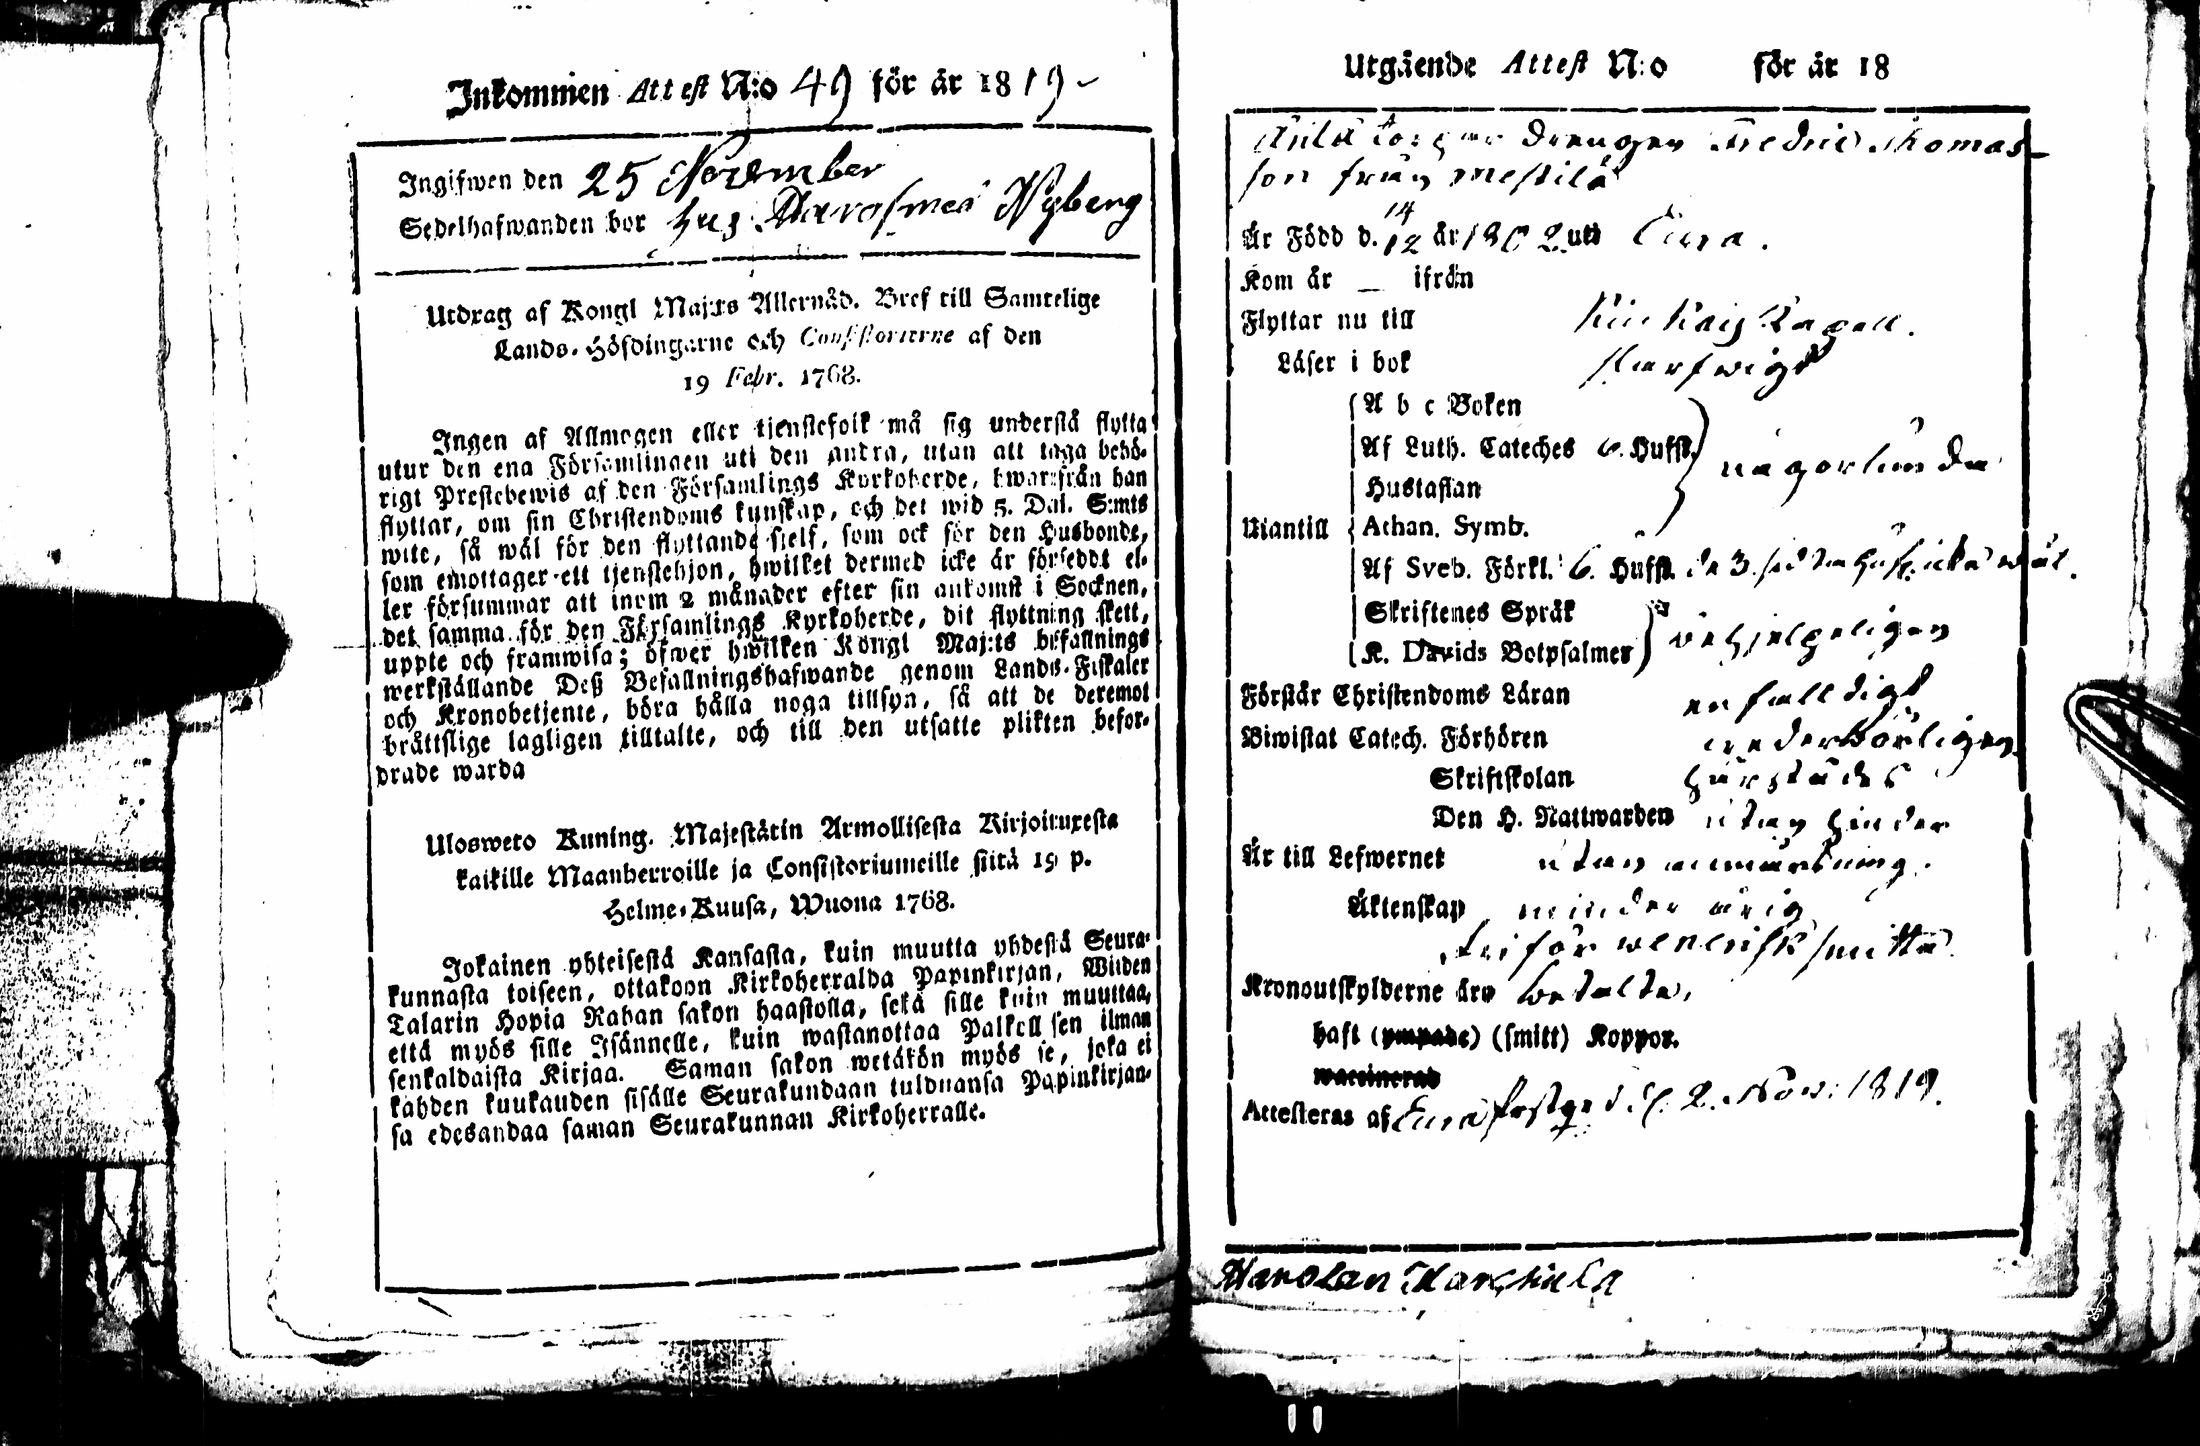 Inkommen Attest N:o 49 för år 1819
Ingifwen den 25 November
Sedelhafwanden bor hos Nyberg
Utdrag af Kongl Maj:ts Allernåd. Bref till Samtelige
Lands-Höfdingarne och Consistorierne af den
19 Febr. 1768.
Ingen af Allmogen eller tjenstefolk må sig understå flytta
utur den ena Församlingen uti den andra, utan att taga behö-
rigt Prestebewis af den Församlings Kyrkoherde, hwarifrån han
flyttar, om sin Christendoms kunskap, och det wid 5. Dal. S:mts
wite, så wäl för den flyttande sjelf, som ock för den Husbonde,
som emottager ett tjenstehjon, hwilket dermed icke är försedt el-
ler försummar att inom 2 månader efter sin ankomst i Socknen,
det samma för den Församlings Kyrkoherde, dit flyttning skett,
uppte och framwisa; öfwer hwilken Kongl Maj:ts befallnings
werkställande Deß Befallningshafwande genom Lands-Fiskaler
och Kronobetjente, böra hålla noga tillsyn, så att de deremot
bråttslige lagligen tilltalte, och till den utsatte plikten befor-
drade warda
Ulosweto Kuning. Majestätin Armollisesta Kirjoituxesta
kaikille Maanherroille ja Consistoriumeille siitä 19 p.
Helme-Kuusa, Wuona 1768.
Jokainen yhteisestä Kansasta, kuin muutta yhdestä Seura-
kunnasta toiseen, ottakoon Kirkoherralda Papinkirjan, Wiiden
Talarin Hopia Rahan sakon haastolla, sekä sille kuin muuttaa,
että myös sille Isännelle, kuin wastanottaa Palkollisen ilman
senkaldaista Kirjaa. Saman sakon wetäkön myös se, joka ei
kahden kuukauden sisälle Seurakundaan tulduansa Papinkirjan-
sa edesandaa saman Seurakunnan Kirkoherralle.
Utgående Attest N:o för år 18
drengen Fredric Thomas-
son från Mestilä
Är Född d. 14/12 år 1802 uti Eura.
Kom år _ ifrån
Flyttar nu till Kapell.
Läser i bok
A b c Boken
Af Luth. Cateches 6. Hufst. någorlunda
Hustaflan
Utantill Athan. Symb.
Af Sveb. Förkl. 6. Hufst. de 3. wäl.
Skriftenes Språk
K. Davids Botpsalmer behjelpeligen
Förstår Christendoms Läran enfalldigt
Biwistat Catech. Förhören wederbörligen
Skriftskolan härstädes
Den H. Nattwarden utan hinder
Är till Lefwernet utan anmärkning.
Äktenskap minder årig
fri för venerisk smitta
Kronoutskylderne äro betalta,
haft (ympade) (smitt) Koppor.
waccinerad
Attesteras af Eura d. 2. Nov: 1819.